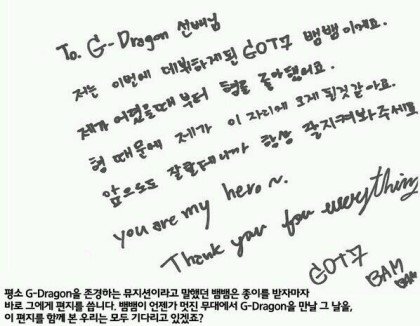 To. G-Dragon 선배님
저는 이번에 데뷔하게된 GOT7 뱀뱀이에요.
제가 어렸을때부터 형을 좋아했어요.
형 때문에 제가 이 자리에 오게 된것 같아요.
앞으로도 잘할테니까 항상 잘지켜봐주세요
you are my hero~.
Thank you for everything
GOT7
BAM
BAM
평소 G-Dragon을 존경하는 뮤지션이라고 말했던 뱀뱀은 종이를 받자마자
바로 그에게 편지를 씁니다. 뱀뱀이 언젠가 멋진 무대에서 G-Dragon을 만날 그 날을,
이 편지를 함께 본 우리는 모두 기다리고 있겠죠?